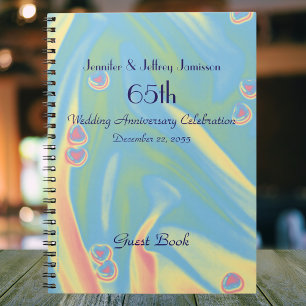 Jennifer & Jeffrey Jamisson
65th
Wedding Anniversary Celebration
December 22, 2055
Guest Book